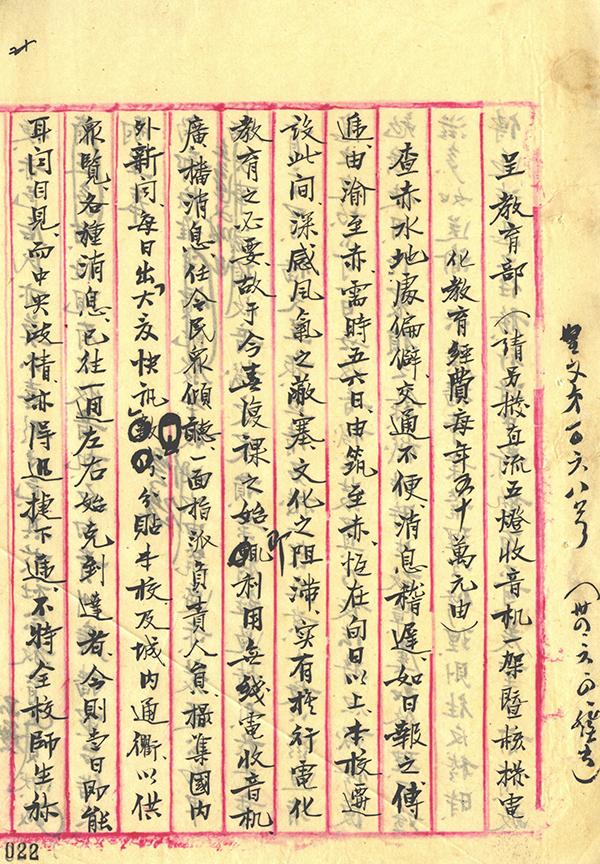 呈文第一百六八号 (卅四、六、四、發出)
呈教育部(請另撥直流五燈收音机一架暨核撥電
化教育經費每年五十萬元由)
查赤水地處偏僻,交通不便,消息稽遲,如日報之傳
遞,由渝至赤,需時五六日,由筑至赤,恒在旬日以上,本校遷
設此间,深感風氣之蔽塞,文化之阻滞,实有推行電化
教育之必要,故于今春復課之始,即利用無线電收音机,
廣播消息,任令民衆傾聽,一面指派負責人員,攝集國内
外新闻,每日出大友快訊,分貼本校及城内通衢,以供
衆覽,各種消息,已往一週左右始克到達者,今則当日即能
耳闻目見,而中央政情,亦得迅捷下達,不特全校師生称
022